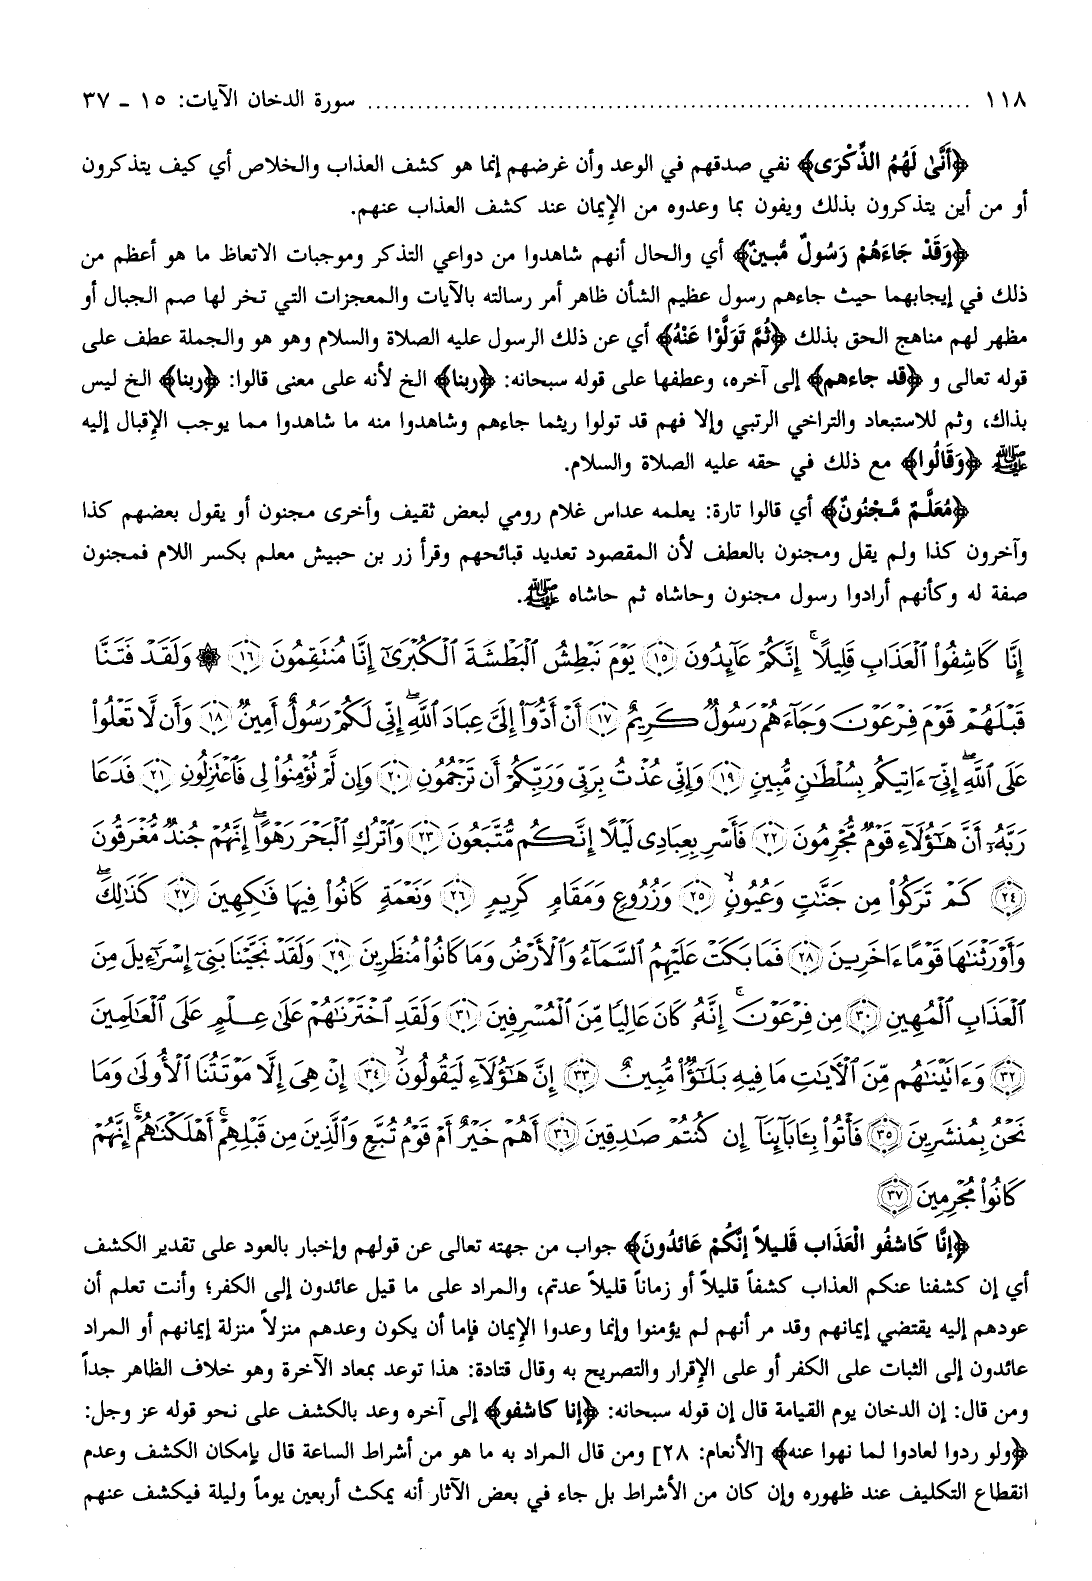 ١١٨ ........................................................................ سورة الدخان الآيات: ١٥ ـ ٣٧
﴿أَنَّىٰ لَهُمُ الذِّكْرَى﴾ نفي صدقهم في الوعد وأن غرضهم إنما هو كشف العذاب والخلاص أي كيف يتذكرون
أو من أين يتذكرون بذلك ويفون بما وعدوه من الإيمان عند كشف العذاب عنهم.
﴿وَقَدْ جَاءَهُمْ رَسُولٌ مُّبِينٌ﴾ أي والحال أنهم شاهدوا من دواعي التذكر وموجبات الاتعاظ ما هو أعظم من
ذلك في إيجابهما حيث جاءهم رسول عظيم الشأن ظاهر أمر رسالته بالآيات والمعجزات التي تخر لها صم الجبال أو
مظهر لهم مناهج الحق بذلك ﴿ثُمَّ تَوَلَّوْا عَنْهُ﴾ أي عن ذلك الرسول عليه الصلاة والسلام وهو هو والجملة عطف على
قوله تعالى و ﴿قد جاءهم﴾ إلى آخره، وعطفها على قوله سبحانه: ﴿ربنا﴾ الخ لأنه على معنى قالوا: ﴿ربنا﴾ الخ ليس
بذاك، وثم للاستبعاد والتراخي الرتبي وإلا فهم قد تولوا ريثما جاءهم وشاهدوا منه ما شاهدوا مما يوجب الإقبال إليه
ﷺ ﴿وَقَالُوا﴾ مع ذلك في حقه عليه الصلاة والسلام.
﴿مُعَلَّمٌ مَّجْنُونٌ﴾ أي قالوا تارة: يعلمه عداس غلام رومي لبعض ثقيف وأخرى مجنون أو يقول بعضهم كذا
وآخرون كذا ولم يقل ومجنون بالعطف لأن المقصود تعديد قبائحهم وقرأ زر بن حبيش معلم بكسر اللام فمجنون
صفة له وكأنهم أرادوا رسول مجنون وحاشاه ثم حاشاه ﷺ.
إِنَّا كَاشِفُوا۟ ٱلْعَذَابِ قَلِيلًا ۚ إِنَّكُمْ عَآئِدُونَ ﴿١٥﴾ يَوْمَ نَبْطِشُ ٱلْبَطْشَةَ ٱلْكُبْرَىٰٓ إِنَّا مُنتَقِمُونَ ﴿١٦﴾ ۞ وَلَقَدْ فَتَنَّا
قَبْلَهُمْ قَوْمَ فِرْعَوْنَ وَجَآءَهُمْ رَسُولٌ كَرِيمٌ ﴿١٧﴾ أَنْ أَدُّوٓا۟ إِلَىَّ عِبَادَ ٱللَّهِ ۖ إِنِّى لَكُمْ رَسُولٌ أَمِينٌ ﴿١٨﴾ وَأَن لَّا تَعْلُوا۟
عَلَى ٱللَّهِ ۖ إِنِّىٓ ءَاتِيكُم بِسُلْطَٰنٍ مُّبِينٍ ﴿١٩﴾ وَإِنِّى عُذْتُ بِرَبِّى وَرَبِّكُمْ أَن تَرْجُمُونِ ﴿٢٠﴾ وَإِن لَّمْ تُؤْمِنُوا۟ لِى فَٱعْتَزِلُونِ ﴿٢١﴾ فَدَعَا
رَبَّهُۥٓ أَنَّ هَٰٓؤُلَآءِ قَوْمٌ مُّجْرِمُونَ ﴿٢٢﴾ فَأَسْرِ بِعِبَادِى لَيْلًا إِنَّكُم مُّتَّبَعُونَ ﴿٢٣﴾ وَٱتْرُكِ ٱلْبَحْرَ رَهْوًا ۖ إِنَّهُمْ جُندٌ مُّغْرَقُونَ
﴿٢٤﴾ كَمْ تَرَكُوا۟ مِن جَنَّٰتٍ وَعُيُونٍ ۙ ﴿٢٥﴾ وَزُرُوعٍ وَمَقَامٍ كَرِيمٍ ﴿٢٦﴾ وَنَعْمَةٍ كَانُوا۟ فِيهَا فَٰكِهِينَ ﴿٢٧﴾ كَذَٰلِكَ ۖ
وَأَوْرَثْنَٰهَا قَوْمًا ءَاخَرِينَ ﴿٢٨﴾ فَمَا بَكَتْ عَلَيْهِمُ ٱلسَّمَآءُ وَٱلْأَرْضُ وَمَا كَانُوا۟ مُنظَرِينَ ﴿٢٩﴾ وَلَقَدْ نَجَّيْنَا بَنِىٓ إِسْرَٰٓءِيلَ مِنَ
ٱلْعَذَابِ ٱلْمُهِينِ ﴿٣٠﴾ مِن فِرْعَوْنَ ۚ إِنَّهُۥ كَانَ عَالِيًا مِّنَ ٱلْمُسْرِفِينَ ﴿٣١﴾ وَلَقَدِ ٱخْتَرْنَٰهُمْ عَلَىٰ عِلْمٍ عَلَى ٱلْعَٰلَمِينَ
﴿٣٢﴾ وَءَاتَيْنَٰهُم مِّنَ ٱلْءَايَٰتِ مَا فِيهِ بَلَٰٓؤٌا۟ مُّبِينٌ ﴿٣٣﴾ إِنَّ هَٰٓؤُلَآءِ لَيَقُولُونَ ۙ ﴿٣٤﴾ إِنْ هِىَ إِلَّا مَوْتَتُنَا ٱلْأُولَىٰ وَمَا
نَحْنُ بِمُنشَرِينَ ﴿٣٥﴾ فَأْتُوا۟ بِـَٔابَآئِنَآ إِن كُنتُمْ صَٰدِقِينَ ﴿٣٦﴾ أَهُمْ خَيْرٌ أَمْ قَوْمُ تُبَّعٍ وَٱلَّذِينَ مِن قَبْلِهِمْ ۚ أَهْلَكْنَٰهُمْ ۚ إِنَّهُمْ
كَانُوا۟ مُجْرِمِينَ ﴿٣٧﴾
﴿إِنَّا كَاشِفُو الْعَذَابِ قَلِيلاً إِنَّكُمْ عَائِدُونَ﴾ جواب من جهته تعالى عن قولهم وإخبار بالعود على تقدير الكشف
أي إن كشفنا عنكم العذاب كشفاً قليلاً أو زماناً قليلاً عدتم، والمراد على ما قيل عائدون إلى الكفر؛ وأنت تعلم أن
عودهم إليه يقتضي إيمانهم وقد مر أنهم لم يؤمنوا وإنما وعدوا الإيمان فإما أن يكون وعدهم منزلاً منزلة إيمانهم أو المراد
عائدون إلى الثبات على الكفر أو على الإقرار والتصريح به وقال قتادة: هذا توعد بمعاد الآخرة وهو خلاف الظاهر جداً
ومن قال: إن الدخان يوم القيامة قال إن قوله سبحانه: ﴿إنا كاشفو﴾ إلى آخره وعد بالكشف على نحو قوله عز وجل:
﴿ولو ردوا لعادوا لما نهوا عنه﴾ [الأنعام: ٢٨] ومن قال المراد به ما هو من أشراط الساعة قال بإمكان الكشف وعدم
انقطاع التكليف عند ظهوره وإن كان من الأشراط بل جاء في بعض الآثار أنه يمكث أربعين يوماً وليلة فيكشف عنهم